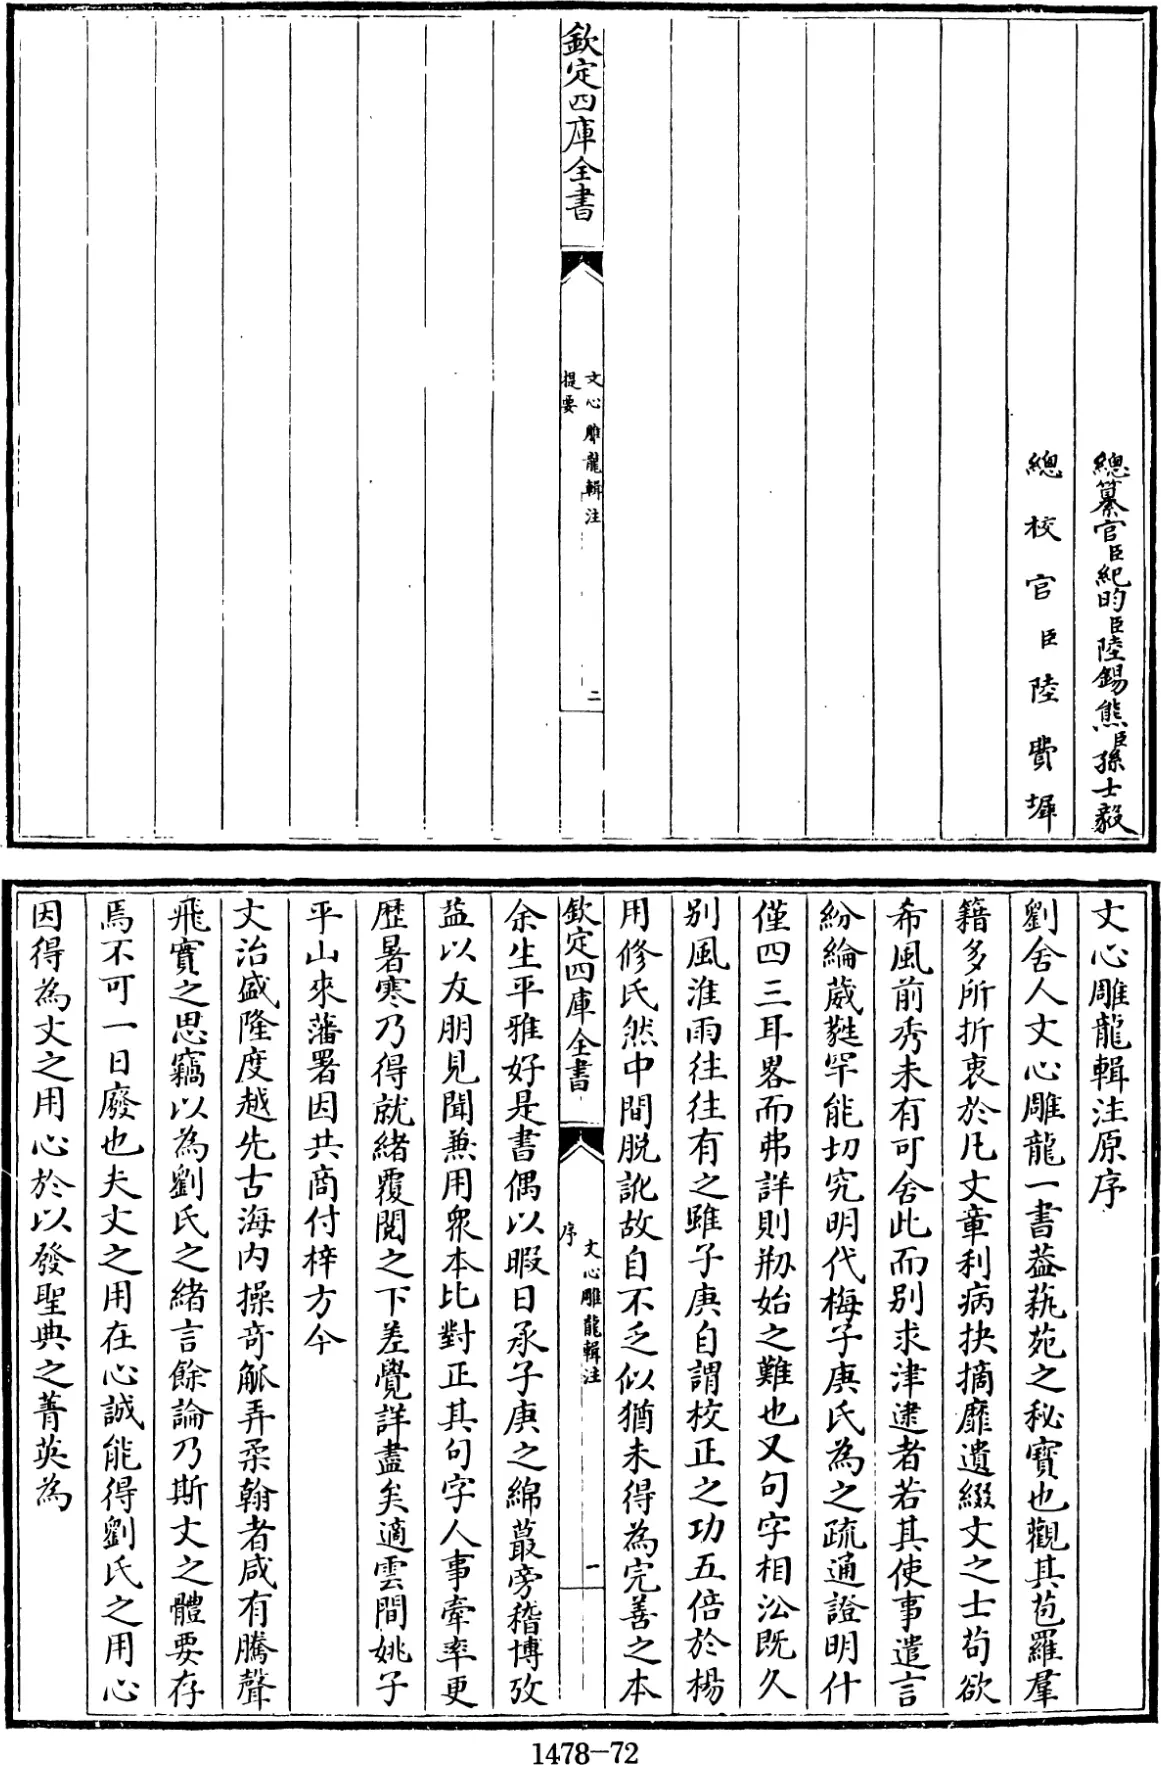 總纂官臣紀昀臣陸錫熊臣孫士毅
總校官臣陸費墀
欽定四庫全書
文心雕龍輯注
提要
二
文心雕龍輯注原序
劉舍人文心雕龍一書蓋蓺苑之秘寶也觀其苞羅羣
籍多所折衷於凡文章利病抉摘靡遺綴文之士苟欲
希風前秀未有可舍此而别求津逮者若其使事遣言
紛綸葳蕤罕能切究明代梅子庚氏為之疏通證明什
僅四三耳畧而弗詳則剏始之難也又句字相沿既久
别風淮雨往往有之雖子庚自謂校正之功五倍於楊
用修氏然中間脱訛故自不乏似猶未得為完善之本
欽定四庫全書
文心雕龍輯注
序
一
余生平雅好是書偶以暇日承子庚之綿蕞旁稽博攷
益以友朋見聞兼用衆本比對正其句字人事牽率更
歴暑寒乃得就緒覆閲之下差覺詳盡矣適雲間姚子
平山來藩署因共商付梓方今
文治盛隆度越先古海内操奇觚弄柔翰者咸有騰聲
飛實之思竊以為劉氏之緒言餘論乃斯文之體要存
焉不可一日廢也夫文之用在心誠能得劉氏之用心
因得為文之用心於以發聖典之菁英為
1478-72